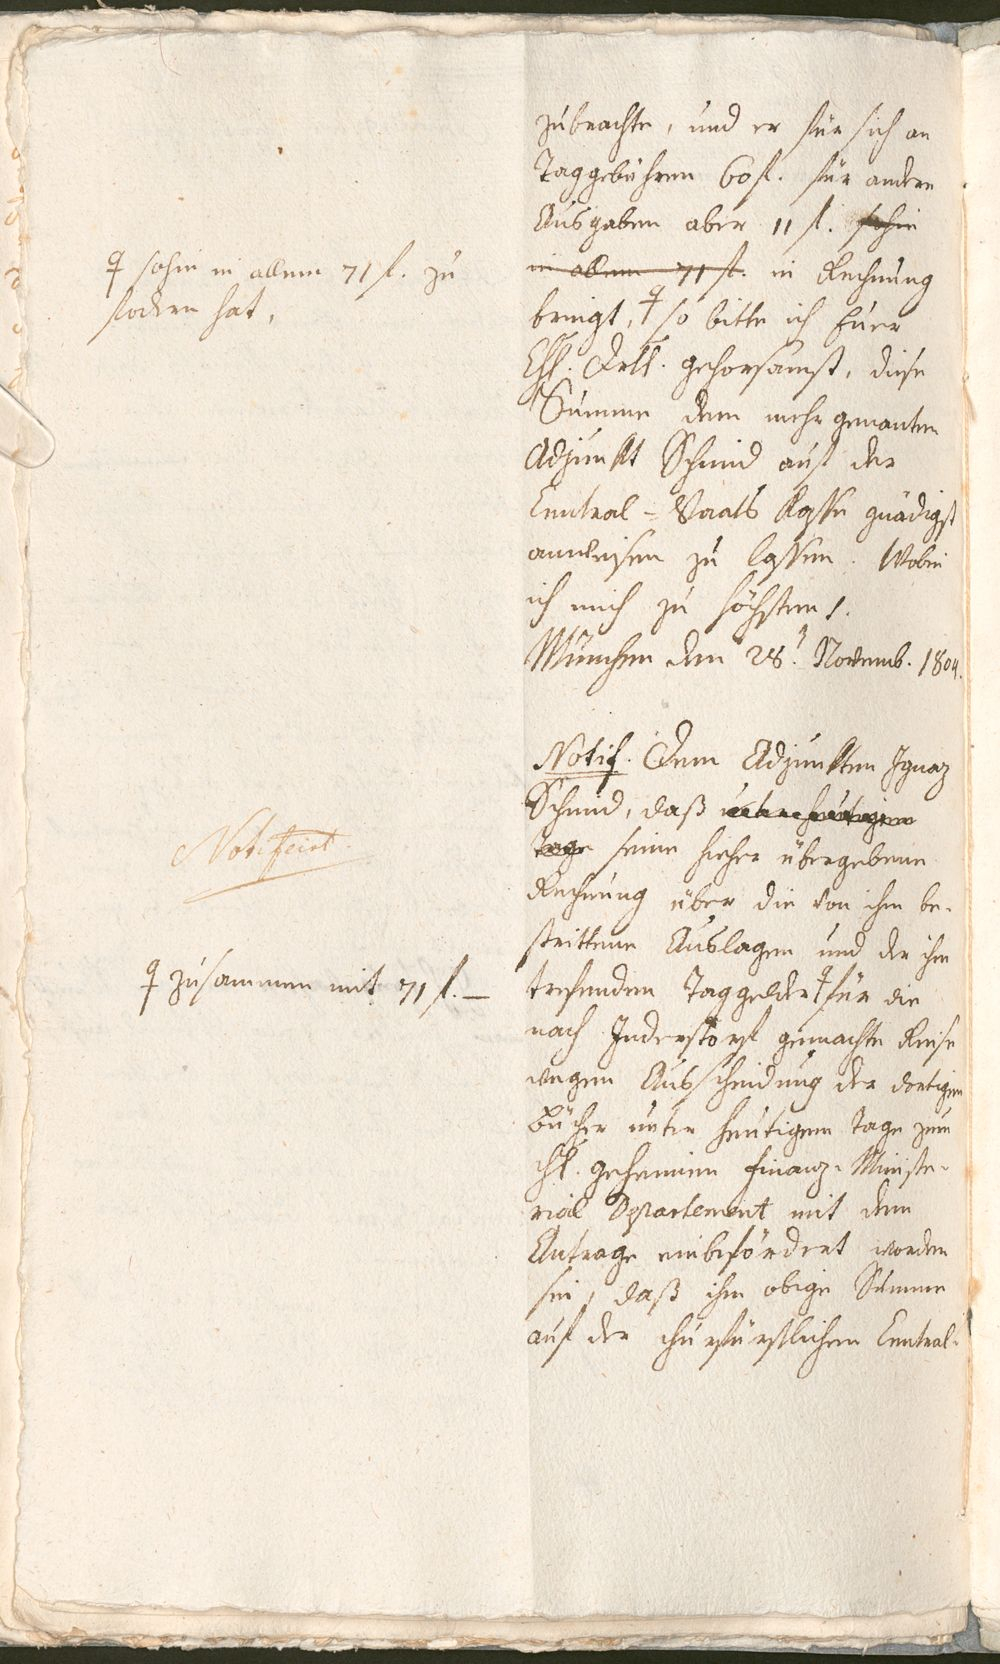 zubrachte, und er für sich an
Taggebühren 60 f. für andere
Ausgaben aber 11 f. sohin
in allem 71 f. in Rechnung
bringt, so bitte ich Euer
Chf. Drtl. gehorsamst, diese
Summe dem mehr genanten
Adjunkt Schmid aus der
Central-Staats Kasse gnädigst
anweisen zu lassen. Wobei
ich mich zu höchsten
München den 28. Novemb. 1804.
sohin in allem 71 f. zu
fodern hat,
Notif. Dem Adjunkten Ignaz
Schmid, daß unter heutigem
Tage seine hieher übergebene
Rechnung über die von ihm be-
strittene Auslagen und der ihm
trefenden Taggelder für die
nach Inderstorf gemachte Reise
wegen Ausscheidung der dortigen
Bücher unter heutigem Tage zum
chf. geheimen Finanz-Ministe-
rial Departement mit dem
Antrage einbefördert worden
sei, daß ihm obige Summe
auf der churfürstlichen Central-
Notificirt.
zusammen mit 71 f. —